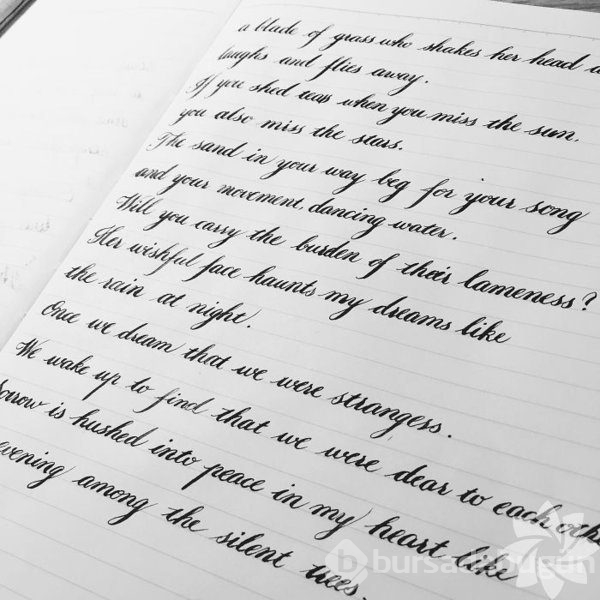 a blade of grass who shakes her head
laughs and flies away.
If you shed tears when you miss the sun,
you also miss the stars.
The sand in your way beg for your song
and your movement, dancing water.
Will you carry the burden of their lameness?
Her wishful face haunts my dreams like
the rain at night.
Once we dream that we were strangers.
We wake up to find that we were dear to each othe
Sorrow is hushed into peace in my heart like
evening among the silent trees.
bursadabugun